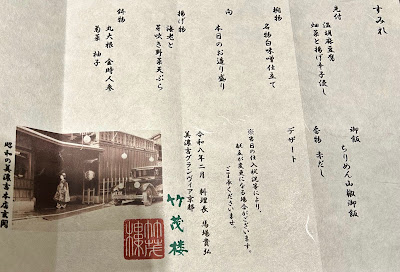 すみれ
先付
温胡麻豆腐
畑菜と揚げ辛子浸し
椀物
名物白味噌仕立て
向
本日のお造り盛り
揚げ物
海老と
芽吹き野菜天ぷら
鉢物
丸大根 金時人参
菊菜 柚子
御飯 ちりめん山椒御飯
香物 赤だし
デザート
※当日の仕入状況等により、
献立が変更になる場合がございます。
ご了承くださいませ。
令和八年二月 料理長 馬場貴弘
美濃吉グランヴィア京都
竹茂楼
竹茂樓
昭和の美濃吉本店玄関